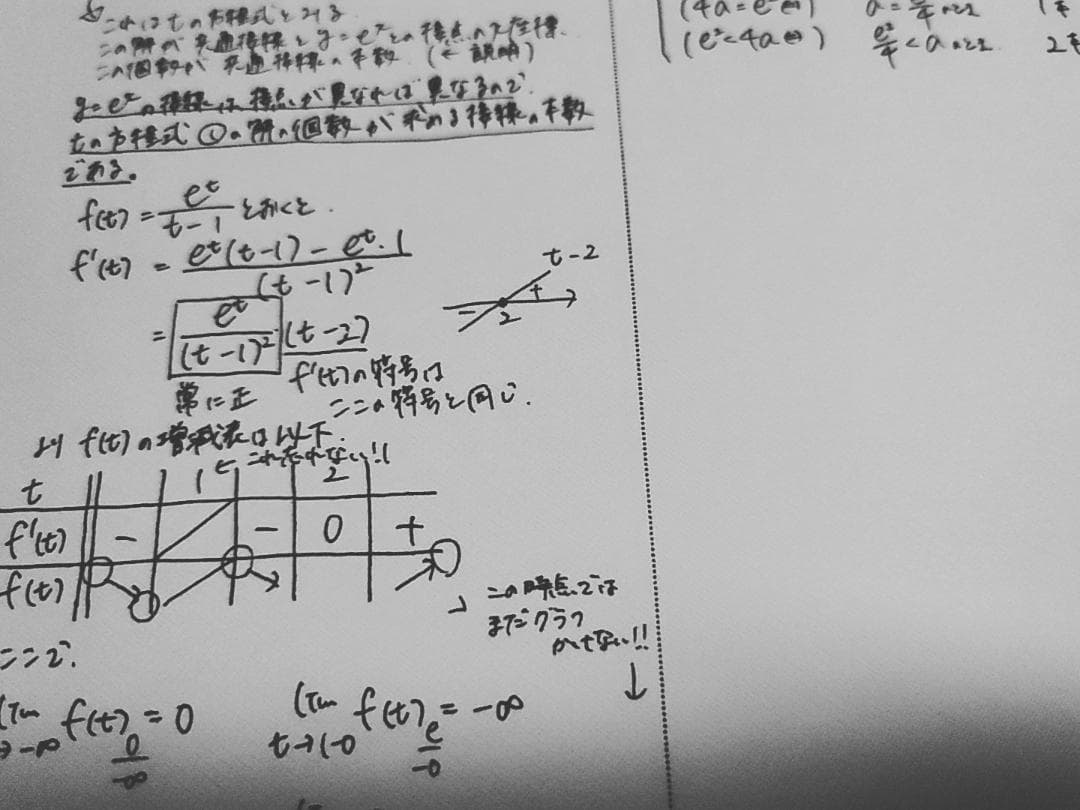 これはtの方程式とみる
この解が共通接線とy=e^xとの接点のx座標.
この個数が共通接線の本数. (← 説明)
y=e^xの接線は、接点が異なれば異なるので、
tの方程式①の解の個数が求める接線の本数
である。
f(t) = e^t/(t-1) とおくと.
f'(t) = (e^t(t-1) - e^t・1)/(t-1)^2
= e^t/(t-1)^2 (t-2)
t-2
- + 2
常に正
f'(t)の符号は
ここの符号と同じ.
より f(t)の増減表は以下.
← これをわすれない!!
t 1 2
f'(t) - - 0 +
f(t)
この時点では
まだグラフ
かけない!!
ここで、
lim f(t) = 0
t→-∞ 0/-∞
lim f(t) = -∞
t→1-0 e/-0
(4a=e^2⇔) a=e^2/4 のとき
(e^2<4a⇔) e^2/4<a のとき 2本